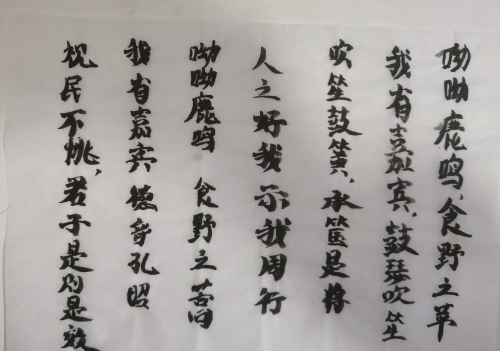 呦呦鹿鸣,食野之苹
我有嘉宾,鼓瑟吹笙
吹笙鼓簧,承筐是将
人之好我 示我周行
呦呦鹿鸣 食野之蒿
我有嘉宾 德音孔昭
视民不恌,君子是则是效